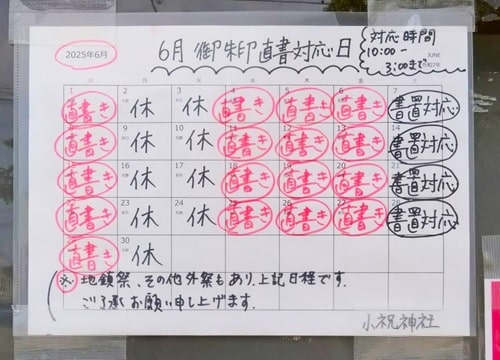 2025年6月
6月 御朱印直書対応日
対応時間
10:00-
3:00まで
JUNE
令和7年
1 2 3 4 5 6 7
直書き 休 休 直書き 直書き 直書き 書置対応
9 10
直書き 休 休 直書き 直書き 直書き 書置対応
16 17
直書き 休 休 直書き 直書き 直書き 書置対応
23 24
直書き 休 休 直書き 直書き 直書き 書置対応
30
直書き 休
※ 地鎮祭、その他外祭もあり、上記日程です。
ご了承お願い申し上げます。
小祝神社